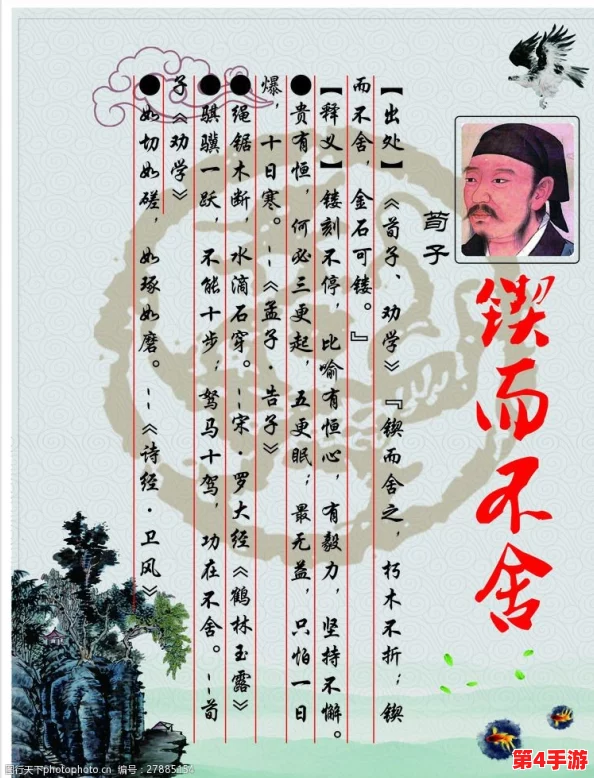 锲而不舍
荀子
【出处】《荀子、劝学》『锲而舍之，朽木不折；锲
而不舍，金石可镂。』
【释义】镂刻不停，比喻有恒心，有毅力，坚持不懈。
●贵有恒，何必三更起，五更眠；最无益，只怕一日
爆，十日寒。--《孟子·告子》
●绳锯木断，水滴石穿。--宋·罗大经《鹤林玉露》
●骐骥一跃，不能十步；驽马十驾，功在不舍。--荀
子《劝学》
●如切如磋，如琢如磨。--《诗经·卫风》
图行天下photophoto.cn 编号：
第4手游